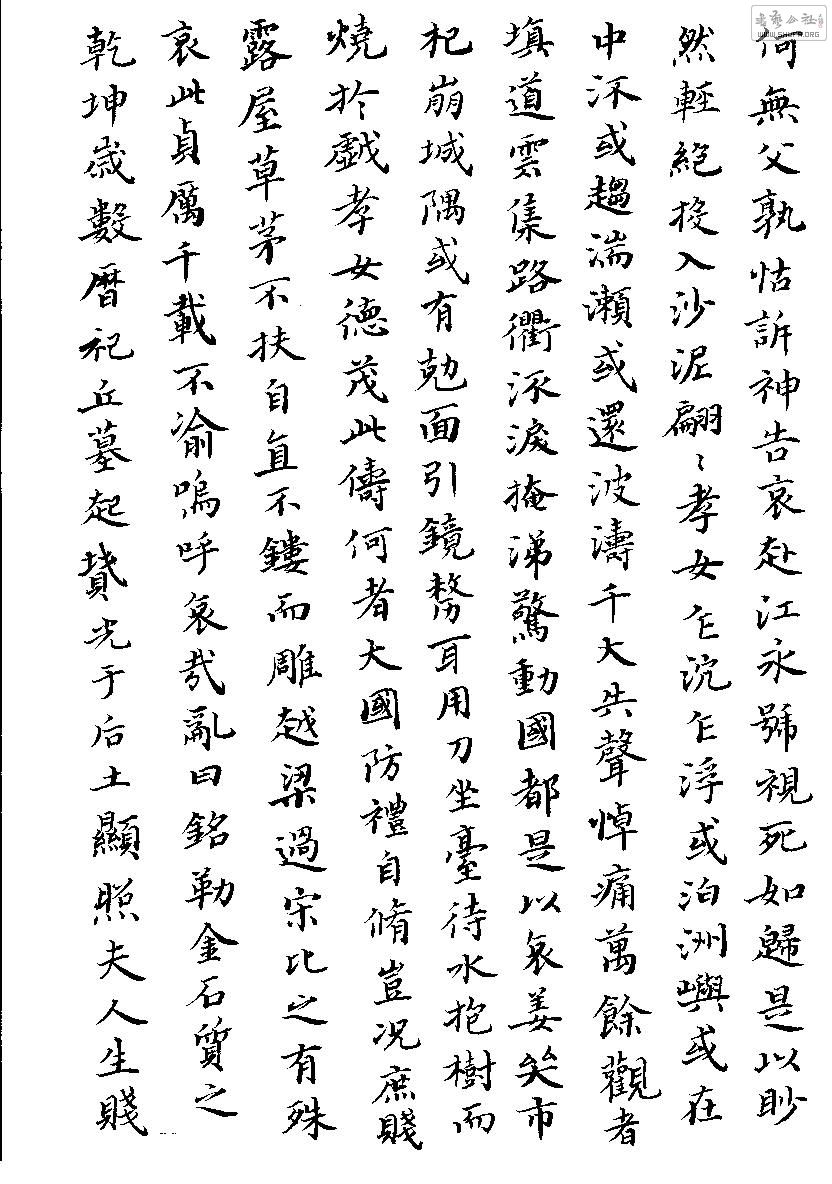 何無父孰怙訴神告哀赴江永號視死如歸是以眇
然輕絕投入沙泥翩〻孝女乍沉乍浮或泊洲嶼或在
中沠或趨湍瀨或還波濤千大失聲悼痛萬餘觀者
填道雲集路衢沠淚掩涕驚動國都是以哀姜哭市
杞崩城隅或有勊面引鏡剺耳用刀坐臺待水抱樹而
燒扵戱孝女德茂此儔何者大國防禮自脩豈况庶賤
露屋草茅不扶自直不鏤而雕越梁過宋比之有殊
哀此貞厲千載不渝嗚呼哀哉亂曰銘勒金石質之
乾坤歲數曆祀丘墓起墳光于后土顯照夫人生賤
WWW.SHUFA.ORG